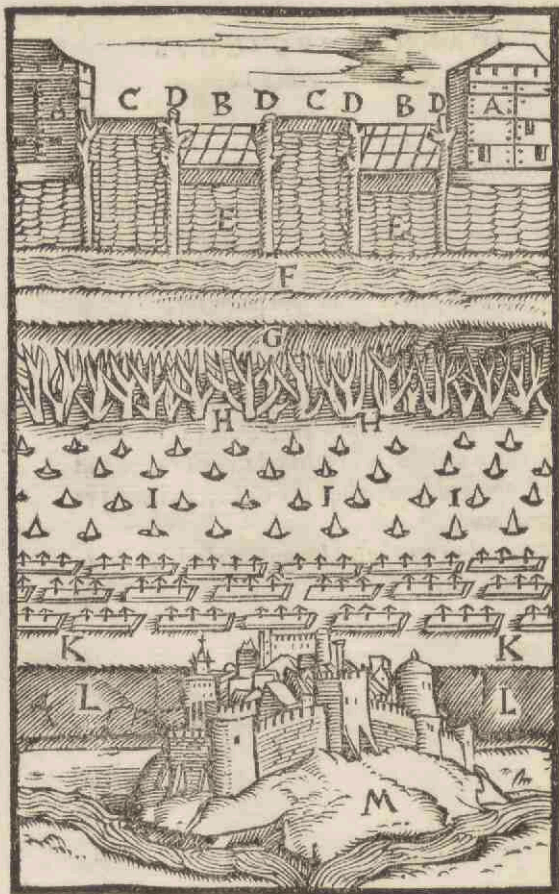 C D B D C D B D A
E E
F
G
H H
I I I
K K
L L
M